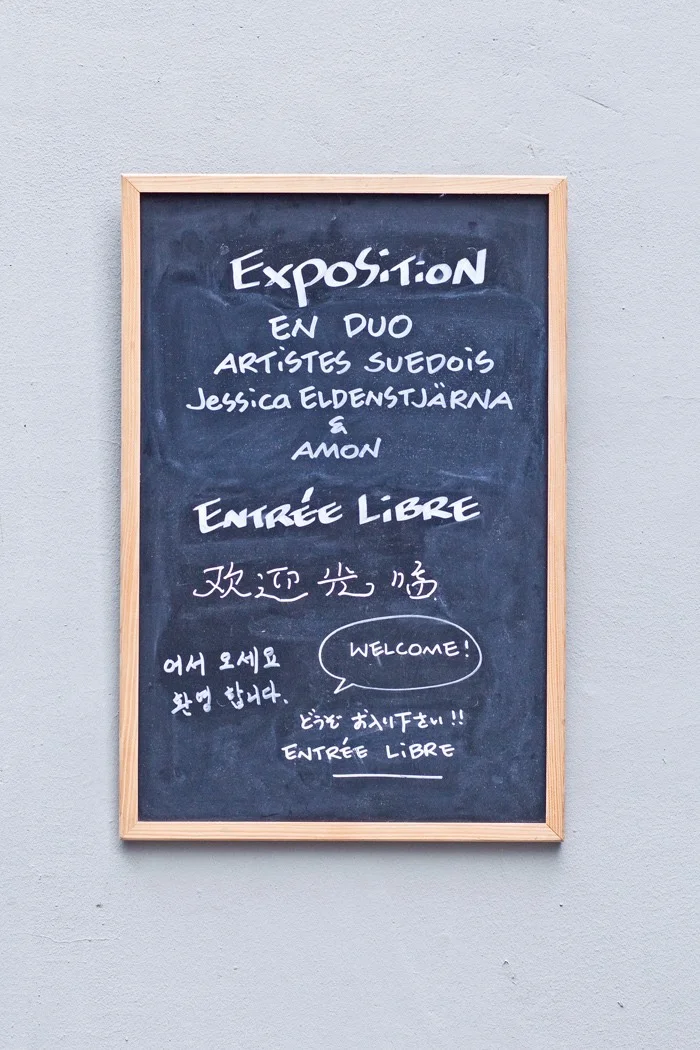 Exposition
EN DUO
ARTISTES SUEDOIS
Jessica ELDENSTJÄRNA
&
AMON
ENTRÉE LIBRE
欢迎光临
어서 오세요
환영 합니다.
WELCOME!
どうぞ お入り下さい!!
ENTRÉE LIBRE